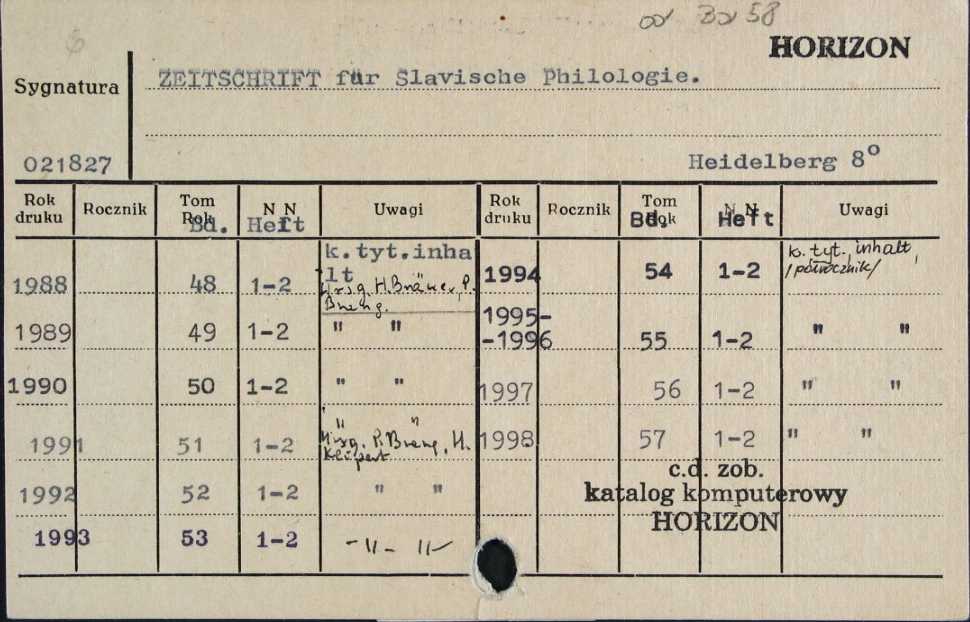 od Bd 58
HORIZON
Sygnatura
ZEITSCHRIFT für Slavische Philologie.
021827
Heidelberg 8°
Rok druku Rocznik Tom Rok Bd. N N Heft Uwagi
1988 48 1-2 k.tyt.inhalt
Hrsg. H. Bräuer, P.
1989 49 1-2 " "
1990 50 1-2 " "
1991 51 1-2 " "
Hrsg. P. H.
1992 52 1-2 " "
1993 53 1-2 -"- "-
Rok druku Rocznik Tom Rok Bd. N N Heft Uwagi
1994 54 1-2 k. tyt. inhalt,
/półrocznik/
1995-
-1996 55 1-2 " "
1997 56 1-2 " "
1998 57 1-2 " "
c.d. zob.
katalog komputerowy
HORIZON